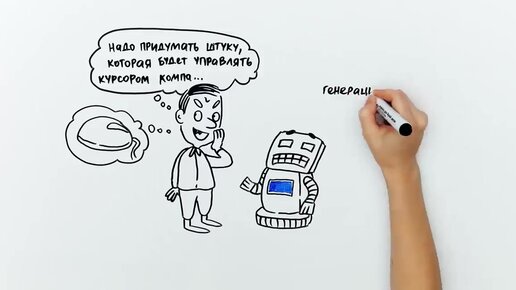 Надо придумать штуку,
которая будет управлять
курсором компа...
генерац